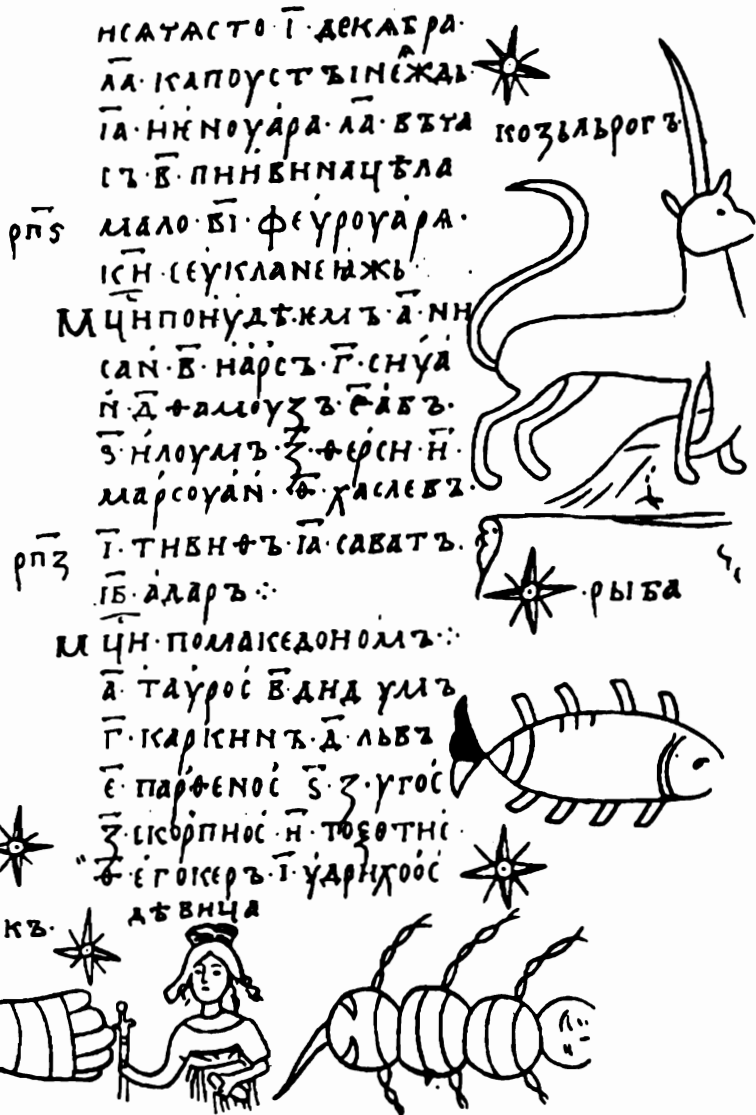 нсѧчасто · і҃ · декѧбра ·
л҃а · капоустъінеѩждь ·
і҃а · нѥноуара · л҃а · вьта
козьльрогъ ·
съ · в҃ · пнйвннацѣла
рп҃ѕ мало · в҃і · феуроуарѧ ·
к҃н · сеуклансѩжь
мц҃н по нудѣкмъ · а҃ · нн
сан · в҃ · нарсъ · г҃ · снуа
н · д҃ · ѳамоузъ · е҃ · авъ ·
ѕ҃ · нлоумъ · з҃ · ѳерсн · н҃ ·
марсоуан · ѳ҃ · хаслевъ ·
рп҃з і҃ · тнвнѳъ · і҃а · саватъ ·
і҃в · адаръ :·
рыба
мц҃н · помакедономъ :·
а҃ · таурос в҃ · днд умъ
г҃ · каркннъ · д҃ · львъ
е҃ · парѳенос ѕ҃ · з · угос
з҃ · скорпнос · н҃ · тоѯотнс ·
ѳ҃ · егокеръ · і҃ · удрнхоос
къ · дѣвнца